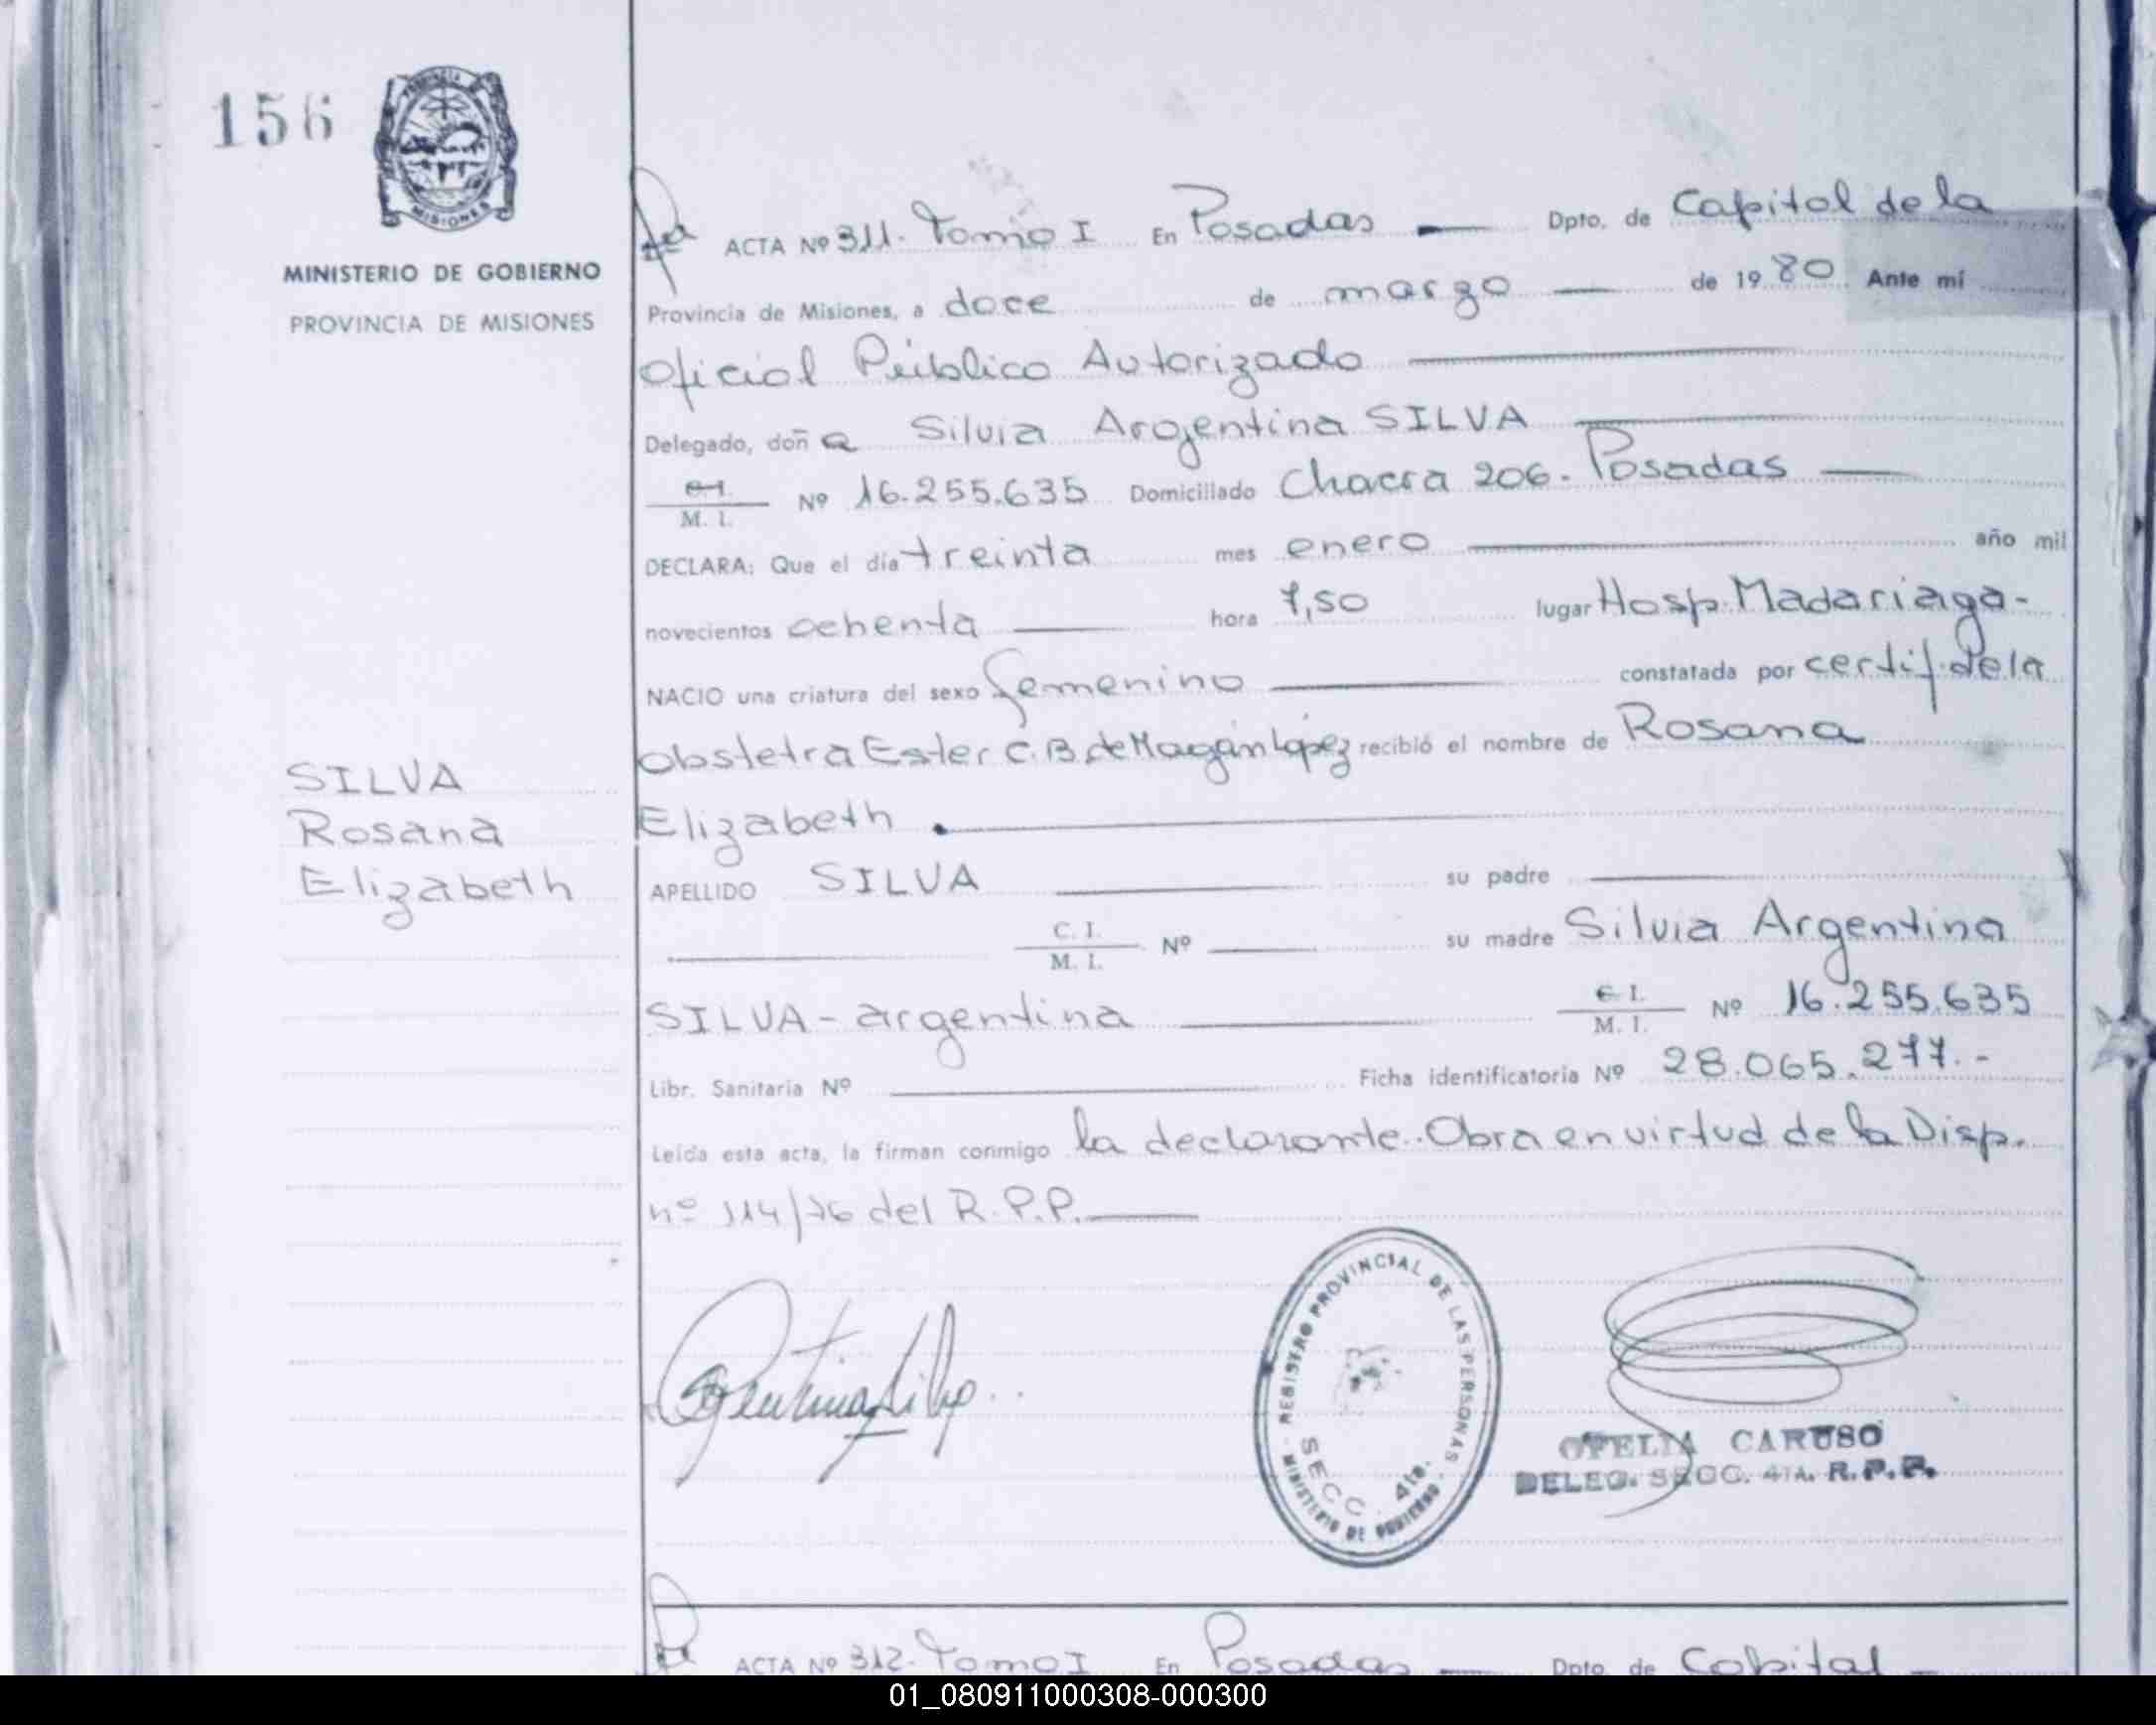 156
PROVINCIA
MISIONES
MINISTERIO DE GOBIERNO
PROVINCIA DE MISIONES
ACTA Nº 311. Tomo I En Posadas — Dpto. de Capital de la
Provincia de Misiones, a doce de marzo — de 19 80 Ante mí
Oficial Público Autorizado —
Delegado, doña Silvia Argentina SILVA —
M. I. Nº 16.255.635 Domiciliado Chacra 206. Posadas —
DECLARA: Que el día treinta mes enero — año mil
novecientos ochenta — hora 7,50 lugar Hosp. Madariaga-
NACIO una criatura del sexo femenino — constatada por certif. de la
Obstetra Ester C. B. de Magán López recibió el nombre de Rosana
Elizabeth . —
SILVA
Rosana
Elizabeth
APELLIDO SILVA — su padre —
— C. I. M. I. Nº — su madre Silvia Argentina
SILVA - argentina — C. I. M. I. Nº 16.255.635
Libr. Sanitaria Nº — Ficha identificatoria Nº 28.065.277.-
Leída esta acta, la firman conmigo la declarante. Obra en virtud de la Disp.
nº 114/76 del R.P.P. —
Argentina Silva
REGISTRO PROVINCIAL DE LAS PERSONAS
SECC. 4ta.
MINISTERIO DE GOBIERNO
OFELIA CARUSO
DELEG. SECC. 4TA. R.P.P.
ACTA Nº 312. Tomo I En Posadas — Dpto. de Capital -
01_080911000308-000300